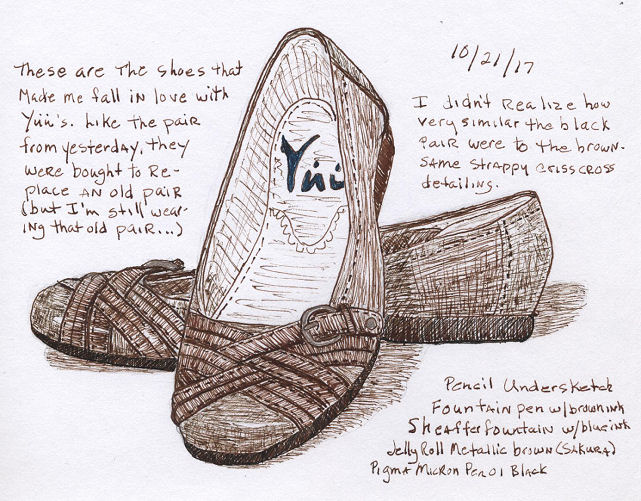 These are the shoes that
made me fall in love with
Yüü's. Like the pair
from yesterday, they
were bought to re-
place an old pair
(but I'm still wear-
ing that old pair...)
10/21/17
I didn't realize how
very similar the black
pair were to the brown.
Same strappy crisscross
detailing.
Yüü
Pencil Undersketch
Fountain pen w/brown ink
Sheaffer fountain w/blue ink
Jelly Roll Metallic brown (SAKURA)
Pigma Micron Pen 01 Black